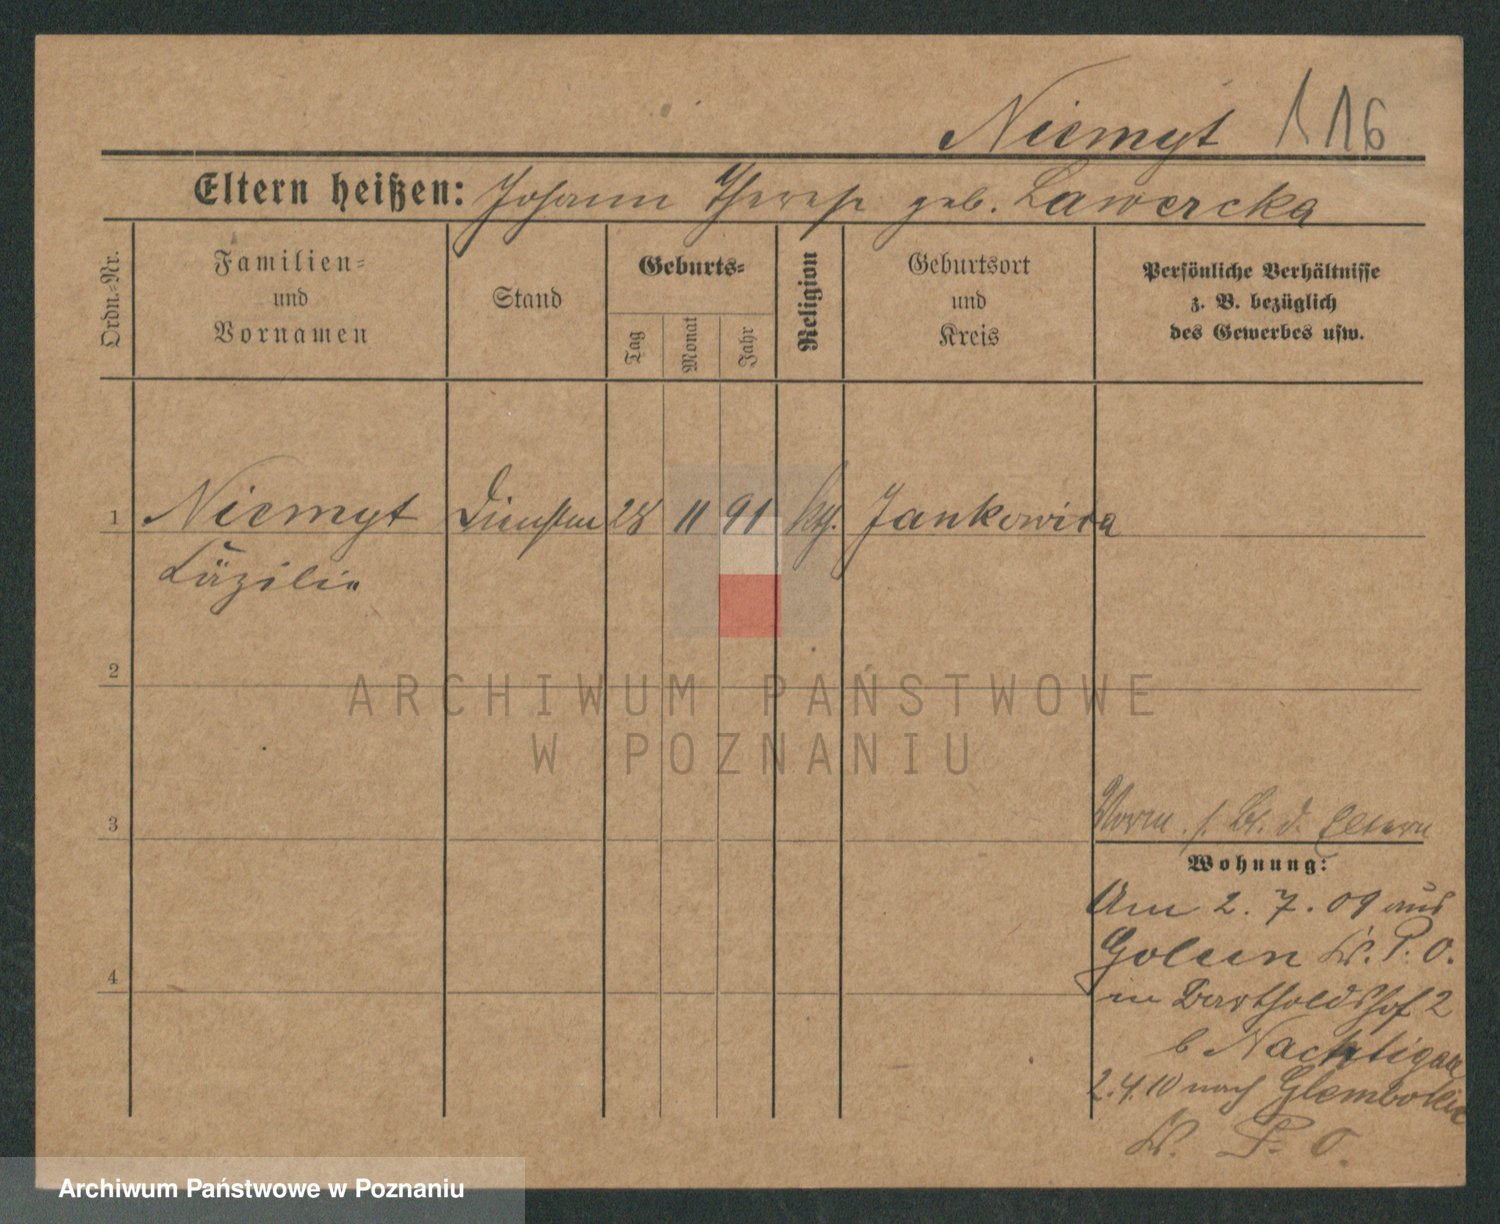 Niemyt 116
Eltern heißen: Johann Therese geb. Lawercka
Ordn.-Nr.
Familien-
und
Vornamen
Stand
Geburts-
Tag
Monat
Jahr
Religion
Geburtsort
und
Kreis
Persönliche Verhältnisse
z. B. bezüglich
des Gewerbes usw.
1 Niemyt 28 11 91 Jankowica
Cäzilie
2
ARCHIWUM PAŃSTWOWE
W POZNANIU
3
d. Eltern
Wohnung:
Am 2. 7. 09 aus
Golun Kr. P. O.
in Bartholdshof 2
b Nachtigall
4
2.4.10 nach
Kr. P. O.
Archiwum Państwowe w Poznaniu